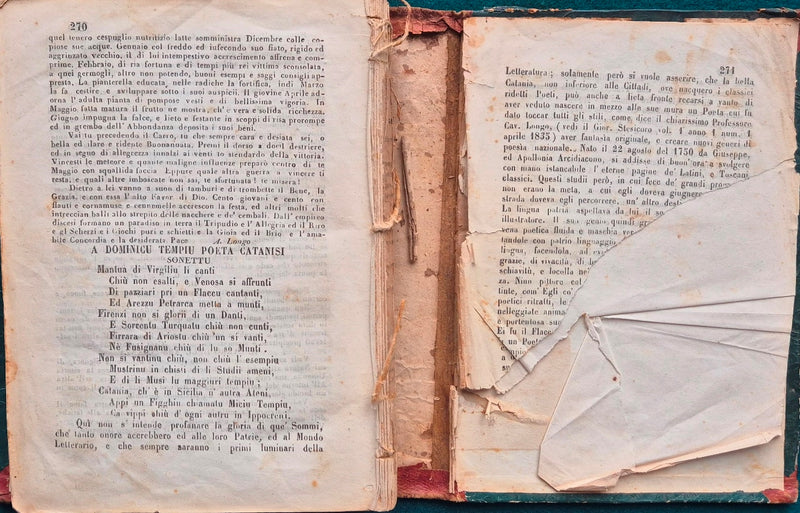 270
quel tenero cespuglio nutritizio latte somministra Dicembre colle co-
piose sue acque. Gennaio col freddo ed infecondo suo fiato, rigido ed
aggriuzato vecchio, il di lui intempestivo accrescimento affrena e com-
prime. Febbraio, di ra fortuna e di tempi più rei vittima sconsolata,
a quei germogli, altro non potendo, buoni esempi e saggi consigli ap-
presta. La pianterella educata, nelle radiche la fortifica, indi Marzo
la fa cestire, e sviluppare sotto i suoi auspicii. Il giovine Aprile ad-
orna l'adulta pianta di pompose vesti e di bellissima vigoria. In
Maggio fatta matura il frutto ne mostra, ch'è vera e solida ricchezza.
Giugno impugna la falce, e lieto e festante in scoppi di risa prorompe
ed in grembo dell'Abbondanza deposita i suoi beni.
Vai tu precedendo il Carro, tu che sempre cara e desiata sei, o
bella ed ilare e ridente Buonannata. Premi il dorso a docil destriero,
ed in segno di allegrezza innalzi ai venti lo stendardo della vittoria.
Vincesti le meteore e quante maligne influenze preparò contro di te
Maggio con squallida faccia. Eppure quale altra guerra a vincere ti
resta, e quali altre imboscate non sai, te sfortunata! te misera!
Dietro a lei vanno a suon di tamburi e di trombette il Bene, la
Grazia, e con essa l'alto Favor di Dio. Cento giovani e cento con
flauti e cornamuse e cennemelle accrescon la festa, ed altri molti che
intreccian balli allo strepito delle nacchere e de' cembali. Dall'empireo
discesi formano un paradiso in terra il Tripudio e l'Allegria ed il Riso
e gl Scherzi e i Giochi puri e schietti e la Gioia ed il Brio e l'ama-
bile Concordia e la desiderata Pace A. Longo
A DOMINICU TEMPIU POETA CATANISI
SONETTU
Mantua di Virgiliu li canti
Chiù non esalti, e Venosa si affrunti
Di pazziari pri un Flaccu cantanti,
Ed Arezzu Petrarca metta a munti,
Firenzi non si glorii di un Danti,
E Sorrentu Turquatu chiù non cunti,
Firrara di Ariostu chiù 'un si vanti,
Nè Fusignanu chiù di lu so Munti.
Non si vantinu chiù, non chiù l'esempiu
Mustrinu in chisti di li Studii ameni,
E di li Musi lu maggiuri tempiu;
Catania, ch'è in Sicilia n'autra Ateni,
Appi un Figghiu chiamatu Miciu Tempiu,
Ca vippi chiù d'ogni autru in Ippocreni.
Quì non s'intende profanare la gloria di que' Sommi,
che tanto onore accrebbero ed alle loro Patrie, ed al Mondo
Letterario, e che sempre saranno i primi luminari della
271
Letteratura; solamente però si vuole asserire, che la bella
Catania, non inferiore alle Cittadi, ove nacquero i classici
ridetti Poeti, può anche a lieta fronte recarsi a vanto di
aver veduto nascere in mezzo alle sue mura un Poeta cui fu
dato toccar tutti gli stili, come dice il chiarissimo Professore
Cav. Longo, (vedi il Gior. Stesicoro vol. 1 anno 1 num. 1
aprile 1835) aver fantasia originale, e creare nuovi generi di
poesia nazionale. Nato il 22 agosto del 1750 da Giuseppe,
ed Apollonia Arcidiacono, si addisse di buon'ora a svolgere
con mano istancabile l'eterne pagine de' Latini, e Toscani
classici. Questi studi però, in cui fece de' grandi
non erano la meta, a cui egli doveva giungere
strada doveva egli percorrere, un'altro
La lingua patria aspettava da lui il
illustratore. Il suo genio, quindi
vena poetica fluida e maschia,
tandole con patrio linguaggio,
lingua, facendola, ad
grazie, di vivacità, di
schiavitù, e locolla
za. Nino pittore
tinte, com'Egli
poetici ritratti, le
nelleggiate
e portentosa
Ei fu il Flacc
un Poet